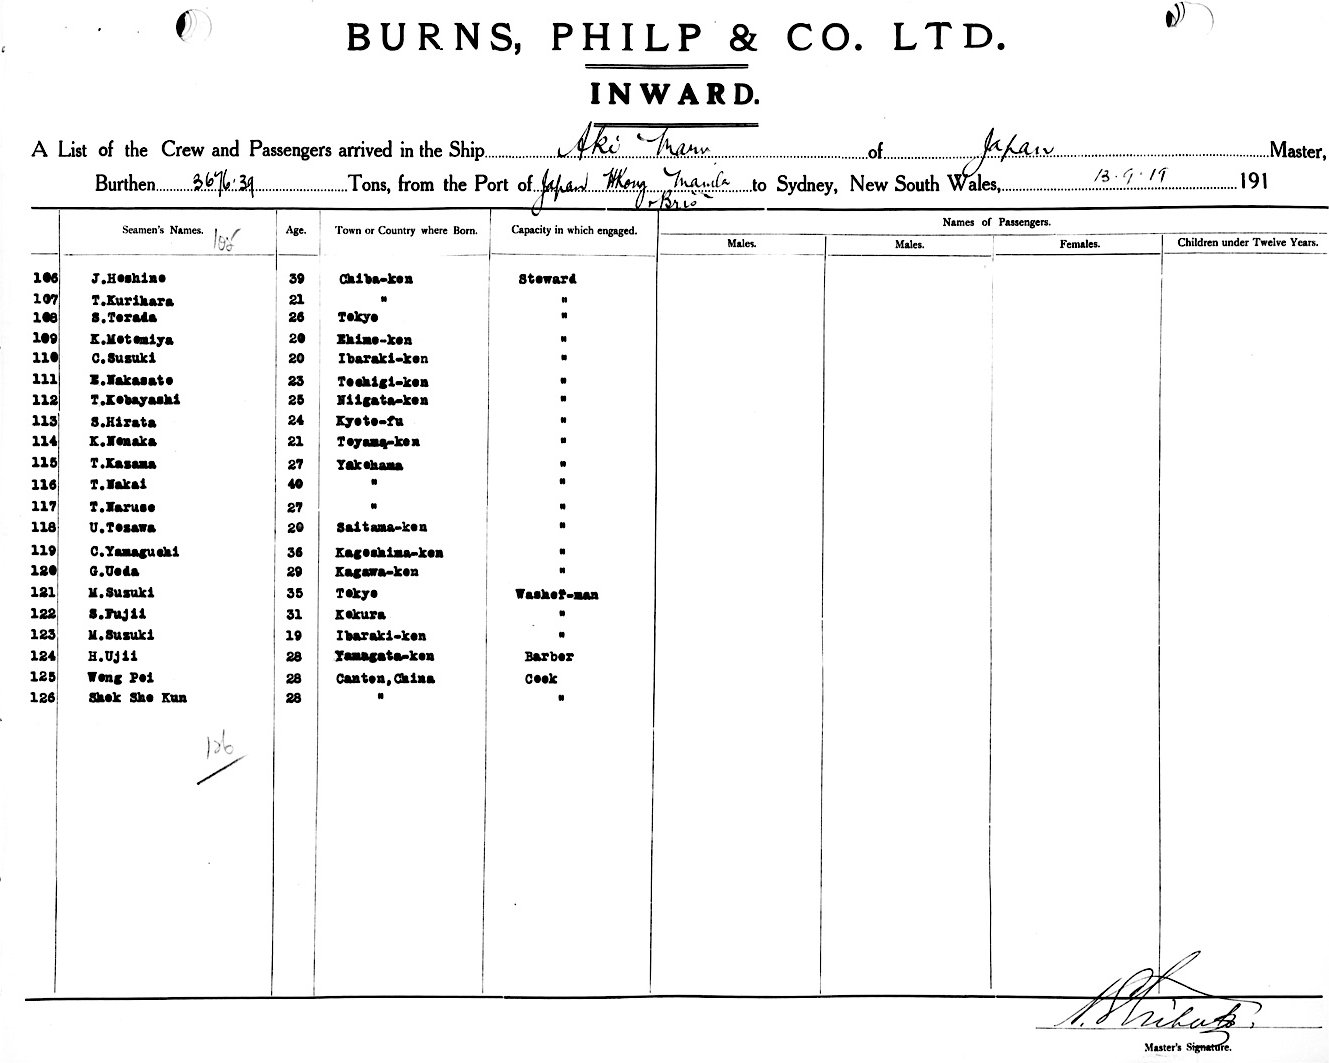 BURNS, PHILP & CO. LTD.
INWARD.
A List of the Crew and Passengers arrived in the Ship Aki Maru of Japan Master,
Burthen 3676.39 Tons, from the Port of Japan HKong Manila to Sydney, New South Wales, 13.9.19 191
& Bris
Names of Passengers.
Seamen's Names. 105 Age. Town or Country where Born. Capacity in which engaged. Males. Males. Females. Children under Twelve Years.
106 J.Hoshino 39 Chiba-ken Steward
107 T.Kurihara 21 " "
108 S.Terada 26 Tokyo "
109 K.Motomiya 20 Ehime-ken "
110 C.Suzuki 20 Ibaraki-ken "
111 E.Nakasato 23 Tochigi-ken "
112 T.Kobayashi 25 Niigata-ken "
113 S.Hirata 24 Kyoto-fu "
114 K.Nonaka 21 Toyama-ken "
115 T.Kasama 27 Yakohama "
116 T.Nakai 40 " "
117 T.Naruse 27 " "
118 U.Tozawa 20 Saitama-ken "
119 C.Yamaguchi 36 Kagoshima-ken "
120 G.Ueda 29 Kagawa-ken "
121 M.Suzuki 35 Tokyo Washer-man
122 S.Fujii 31 Kokura "
123 M.Suzuki 19 Ibaraki-ken "
124 H.Ujii 28 Yamagata-ken Barber
125 Wong Poi 28 Canton,China Cook
126 Shek She Kun 28 " "
126
Master's Signature.